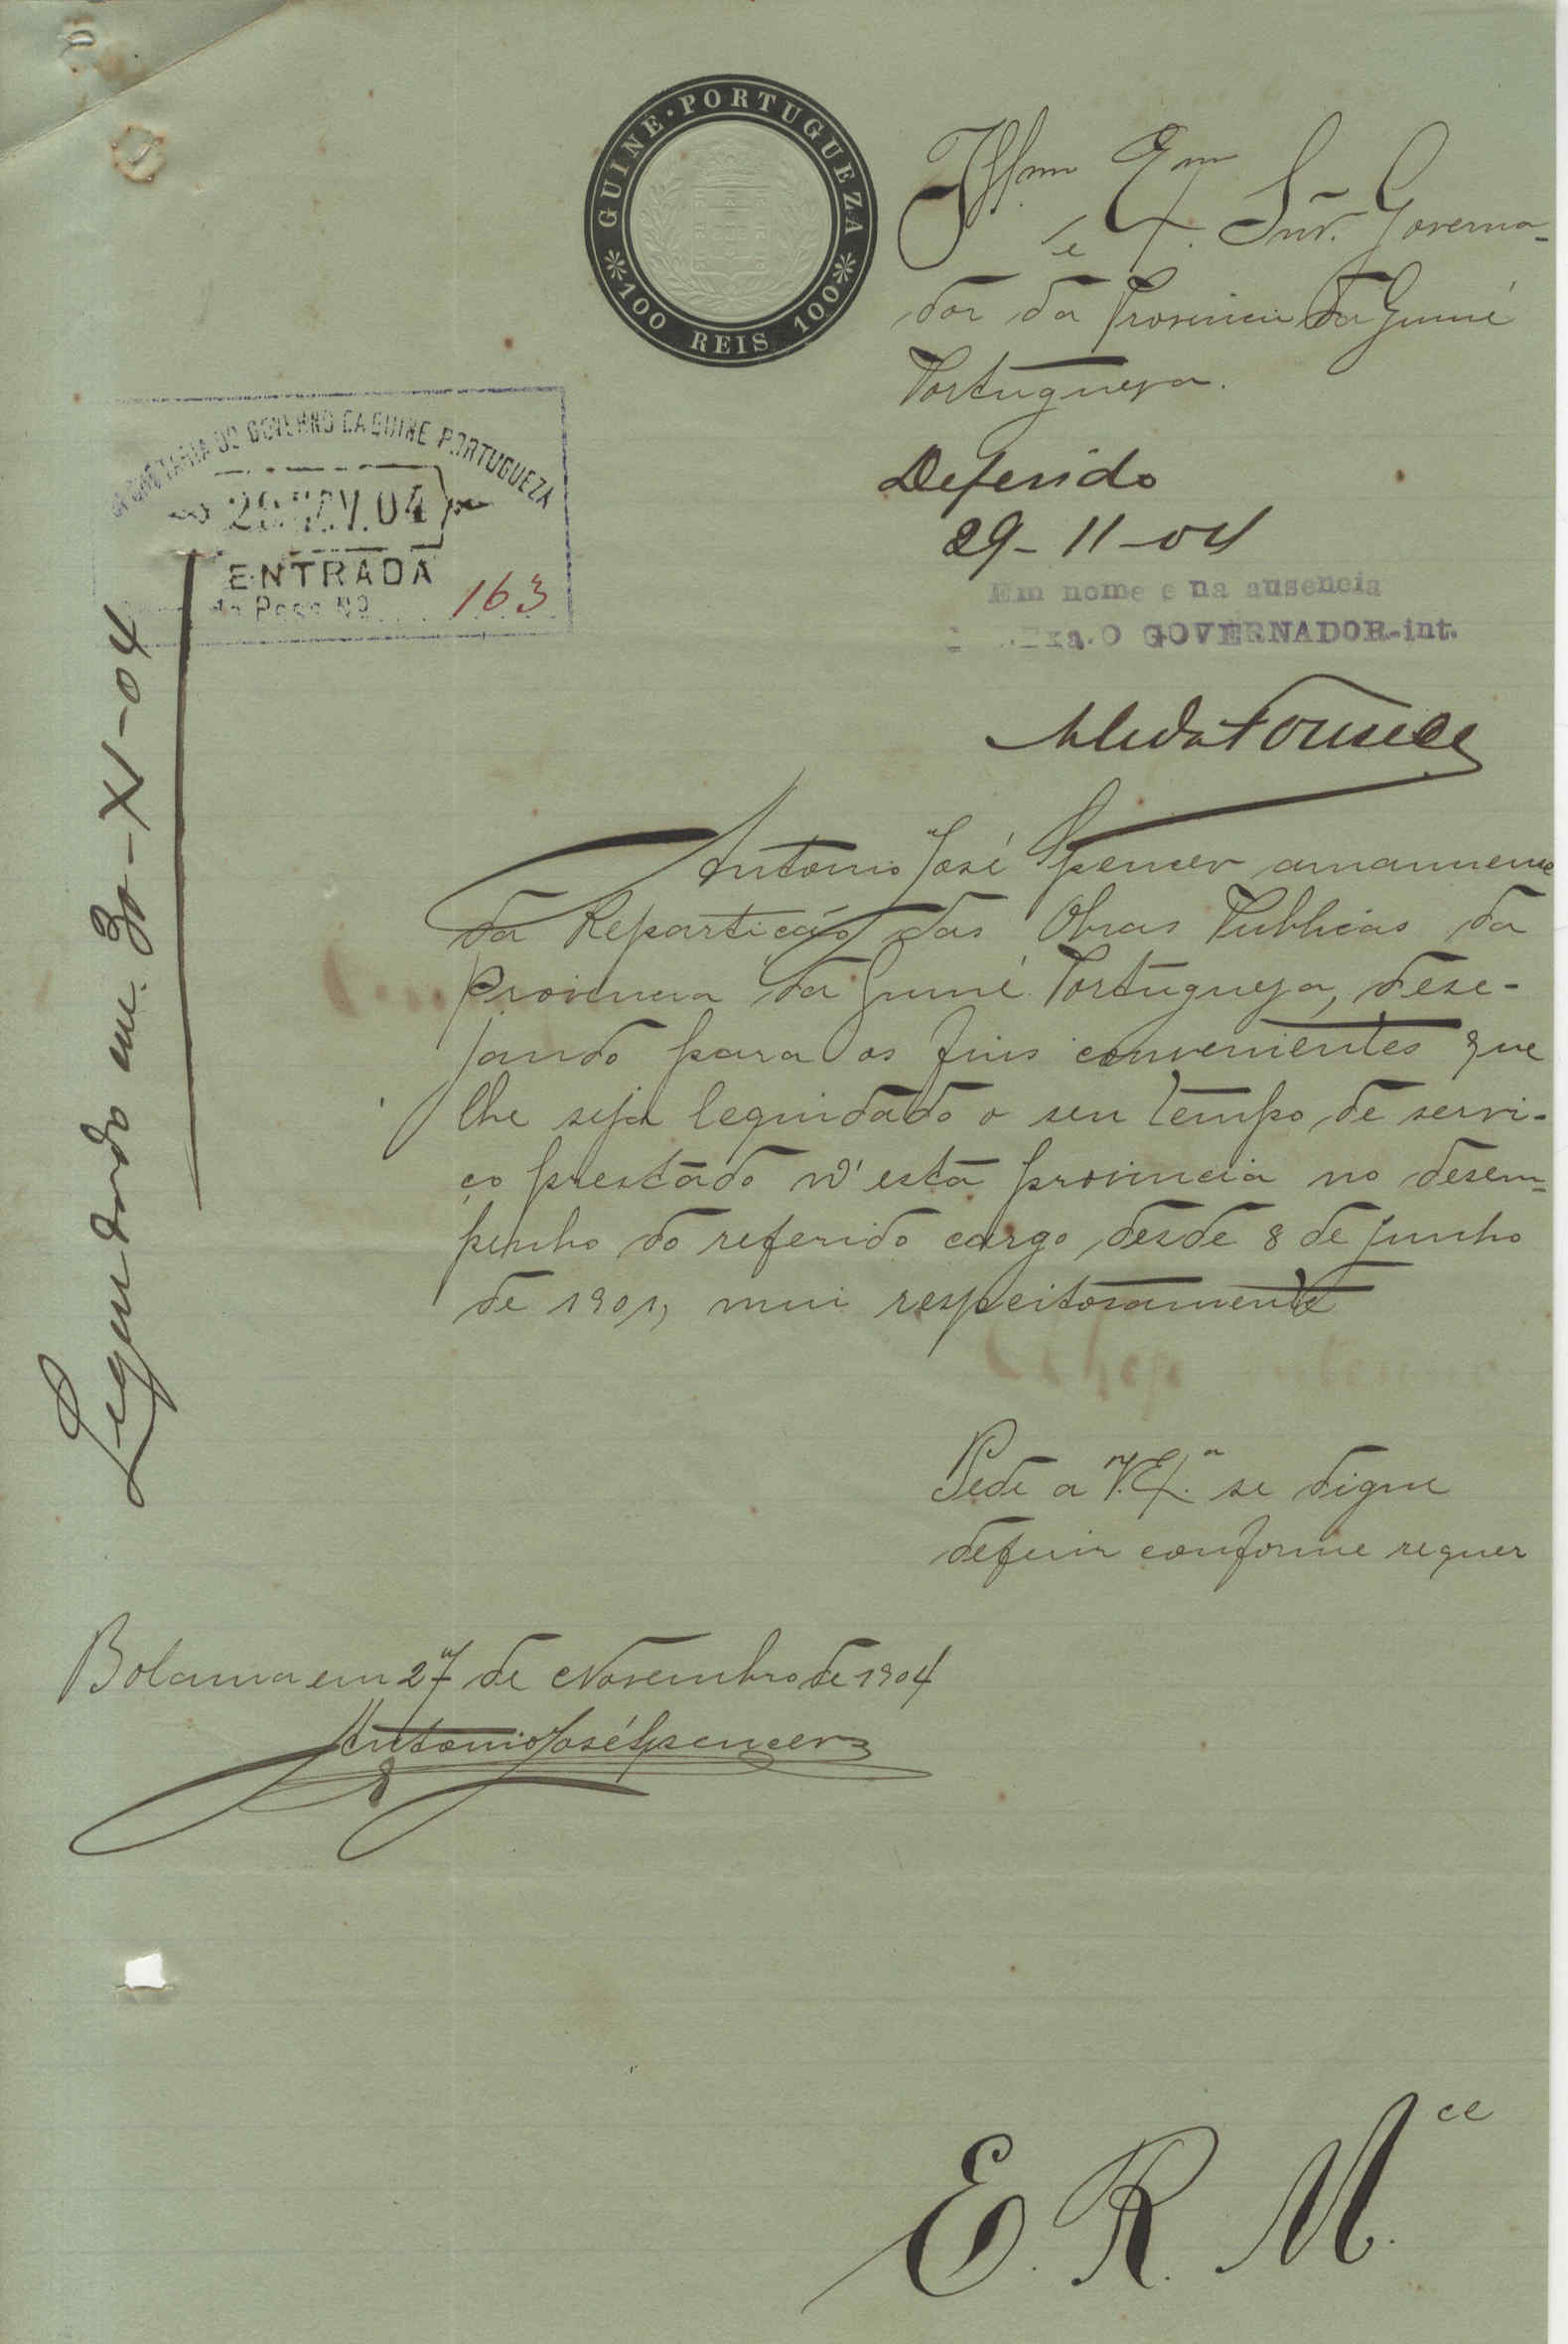 GUINE·PORTUGUEZA
100 REIS 100
Ill.mo e Ex.mo Snr. Governa-
dor da Provincia da Guiné
Portugueza.
SECRETARIA DO GOVERNO DA GUINE PORTUGUEZA
29 NOV. 04
ENTRADA
163
Deferido
29-11-04
Em nome e na ausencia
Exa. O GOVERNADOR-int.
Fonseca
Liquidado em 30-XI-04
Antonio José Spencer amanuense
da Repartição das Obras Publicas da
Provincia da Guiné Portugueza, dese-
jando para os fins convenientes que
lhe seja liquidado o seu tempo de servi-
ço prestado n'esta provincia no desem-
penho do referido cargo, desde 8 de junho
de 1901, mui respeitosamente
Pede a V. Ex.a se digne
deferir conforme requer
Bolama em 27 de Novembro de 1904
Antonio José Spencer
E. R. M.ce